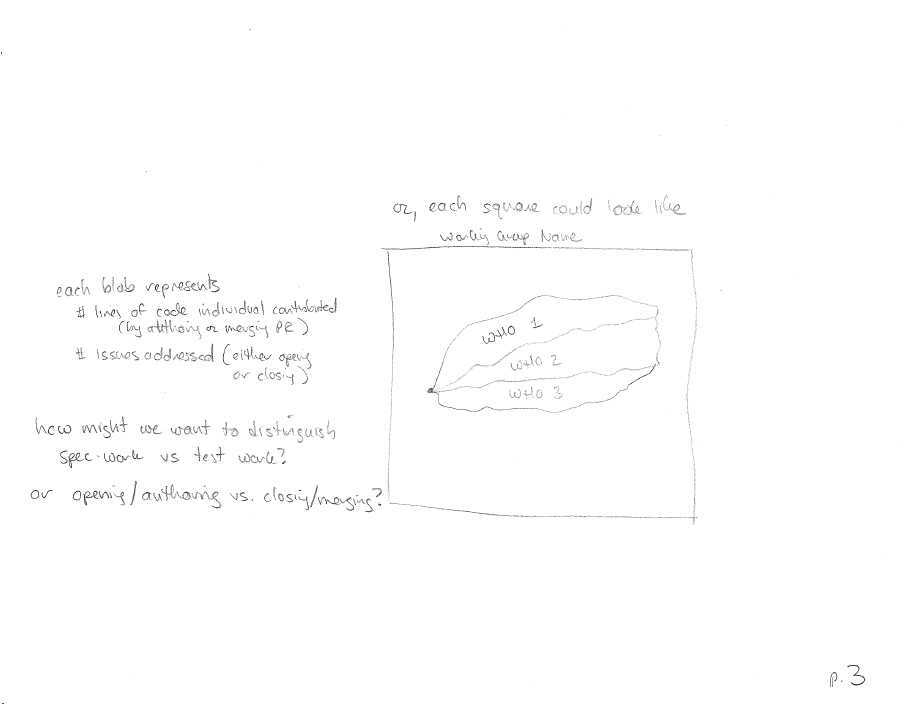 or, each square could look like
Working Group Name
each blob represents
# lines of code individual contributed
(by authoring or merging PR)
# issues addressed (either opening
or closing)
how might we want to distinguish
spec-work vs test work?
or opening/authoring vs. closing/merging?
WHO 1
WHO 2
WHO 3
p.3